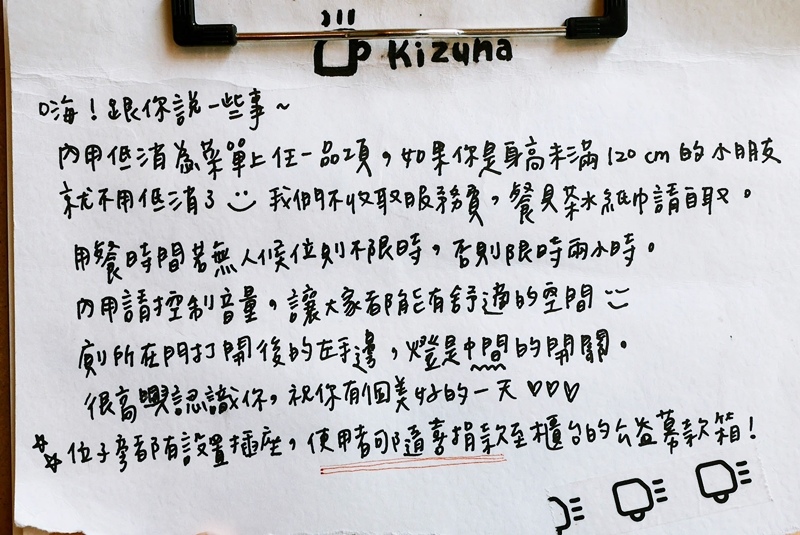 Kizuna
嗨！跟你說一些事~
內用低消為菜單上任一品項，如果你是身高未滿120cm的小朋友
就不用低消了 我們不收取服務費，餐具茶水紙巾請自取。
用餐時間若無人候位則不限時，否則限時兩小時。
內用請控制音量，讓大家都能有舒適的空間
廁所在門打開後的左手邊，燈是中間的開關。
很高興認識你，祝你有個美好的一天♡♡♡
☆位子旁都有設置插座，使用者可隨喜捐款至櫃台的公益募款箱！